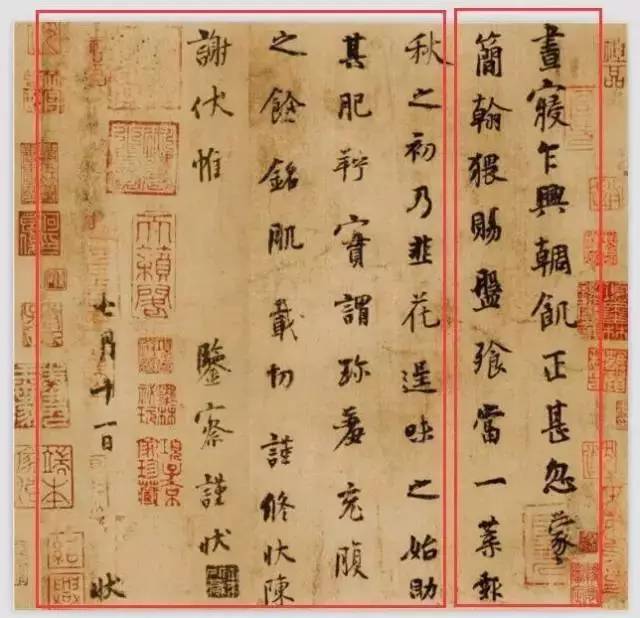 晝寢乍興輖飢正甚忽蒙
簡翰猥賜盤飧當一葉報
秋之初乃韭花逞味之始助
其肥羜實謂珎羞充腹
之餘銘肌載切謹修狀陳
謝伏惟 鑒察謹狀
七月十一日 狀
神品
項子京家珍藏